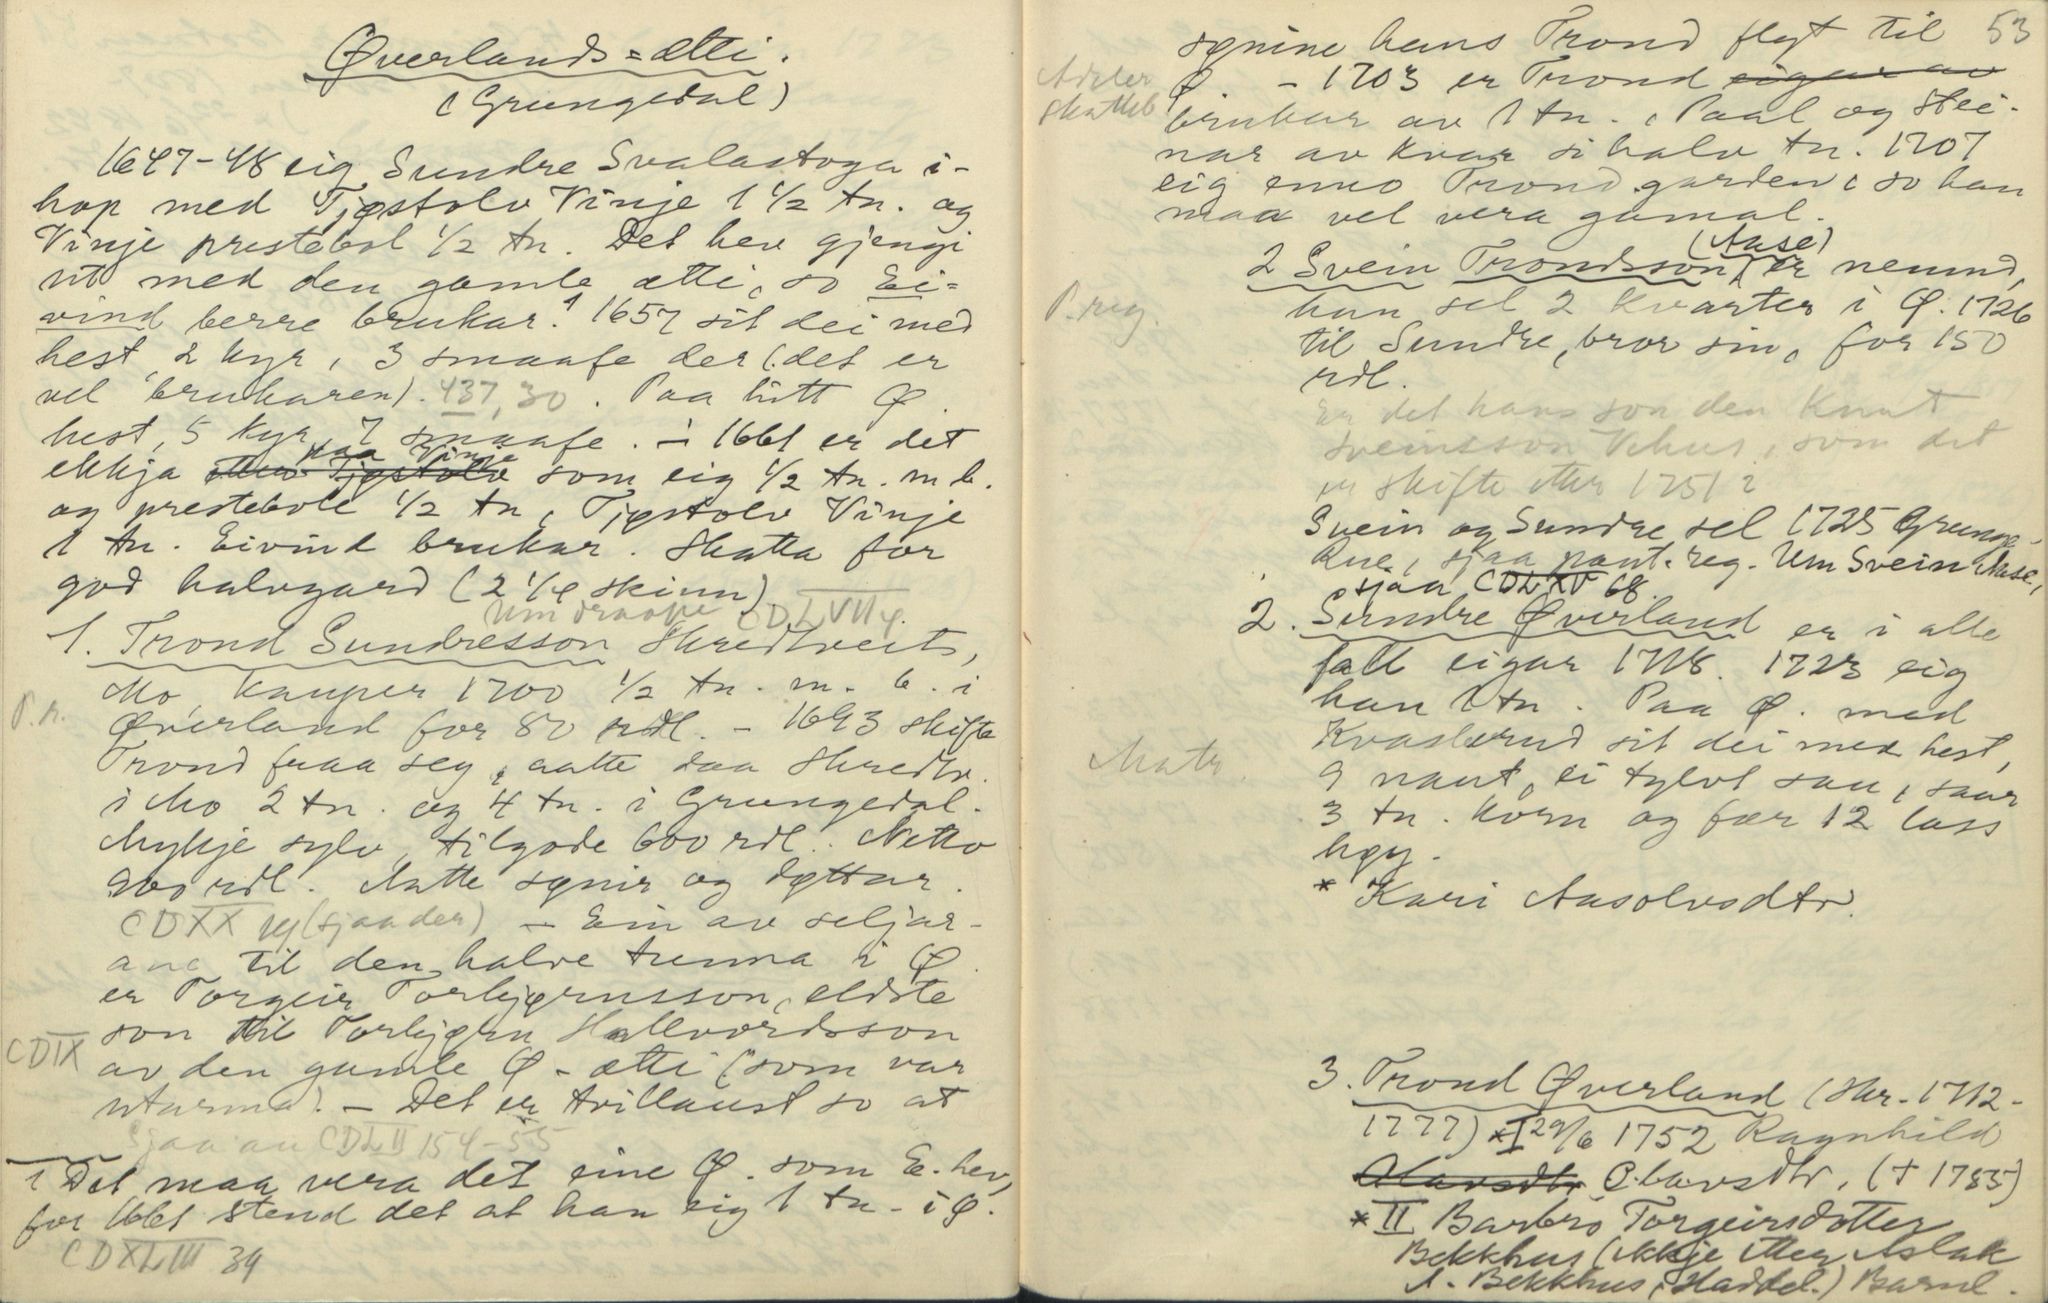 Øverlands=ætti.
(Grungedal)
1647-48 eig Sundre Svalastoga i-
hop med Tjøstolv Vinje 1 1/2 tn. og
Vinje prestebol 1/2 tn. Det hev gjengi
ut med den gamle ætti, so Ei=
vind berre brukar.¹ 1657 sit dei med
hest, 2 kyr, 3 smaafe der (det er
vel brukaren). 437,30. Paa litt Ø.
hest, 5 kyr, 7 smaafe. - 1661 er det
paa Vinje
ekkja etter Tjøstolv som eig 1/2 tn. m.b.
og prestebole 1/2 tn, Tjøstolv Vinje
1 tn. Eivind brukar. Skatta for
god halvgard (2 1/4 skinn)
Um draape CDLVII 4.
1. Trond Sundresson Skredtveit,
P.r.
Mo, kauper 1700 1/2 tn. m. b. i
Øverland for 80 rdl. - 1693 skifte
Trond fraa seg, aatte daa Skredtv.
i Mo 2 tn. og 4 tn. i Grungedal.
Mykje sylv, tilgode 600 rdl. Netto
900 rdl. Aatte synir og døttar.
CDXX (sjaa der) - Ein av seljar-
ane til den halve tunna i Ø.
er Torgeir Torbjørnsson, eldste
son til Torbjørn Hallvordsson
CDIX
av den gamle Ø-ætti (som var
utarma). - Det er tvillaust so at
sjaa au CDLII 154-55
1 Det maa vera det eine Ø. som E. hev,
for 1661 stend det at han eig 1 tn. i Ø.
CDXLIII 39
53
sønine hans Trond flyt til
Ø. - 1703 er Trond eigar av
Skatteb
brukar av 1 tn., Paal og Stei-
nar av kvar si halv tn. 1707
eig enno Trond garden, so han
maa vel vera gamal.
(Aase)
2 Svein Trondsson, er nemnd,
P.reg.
han sel 2 kvarter i Ø. 1726
til Sundre, bror sin, for 150
rdl.
Er det hans son den Knut
Sveinsson Vehus, som det
er skifte etter 1751?
Svein og Sundre sel 1725 Grunge-
Rue, sjaa pant. reg. Um Svein Aase,
sjaa CDLXV 68.
2. Sundre Øverland er i alle
fall eigar 1718. 1723 eig
han 1 tn. Paa Ø. med
Kvasterud sit dei med hest,
Matr.
9 naut, ei tylvt sau, saar
3 tn. korn og fær 12 lass
høy.
* Kari Aasolvsdtr.
3. Trond Øverland (Skr. 1712-
1777) *I 29/6 1752 Ragnhild
Olavsdtr Olavsdtr. († 1785)
*II Barbro Torgeirsdotter
Bekkhus (ekkje etter Aslak
A. Bekkhus, Haddel.) Barnl.